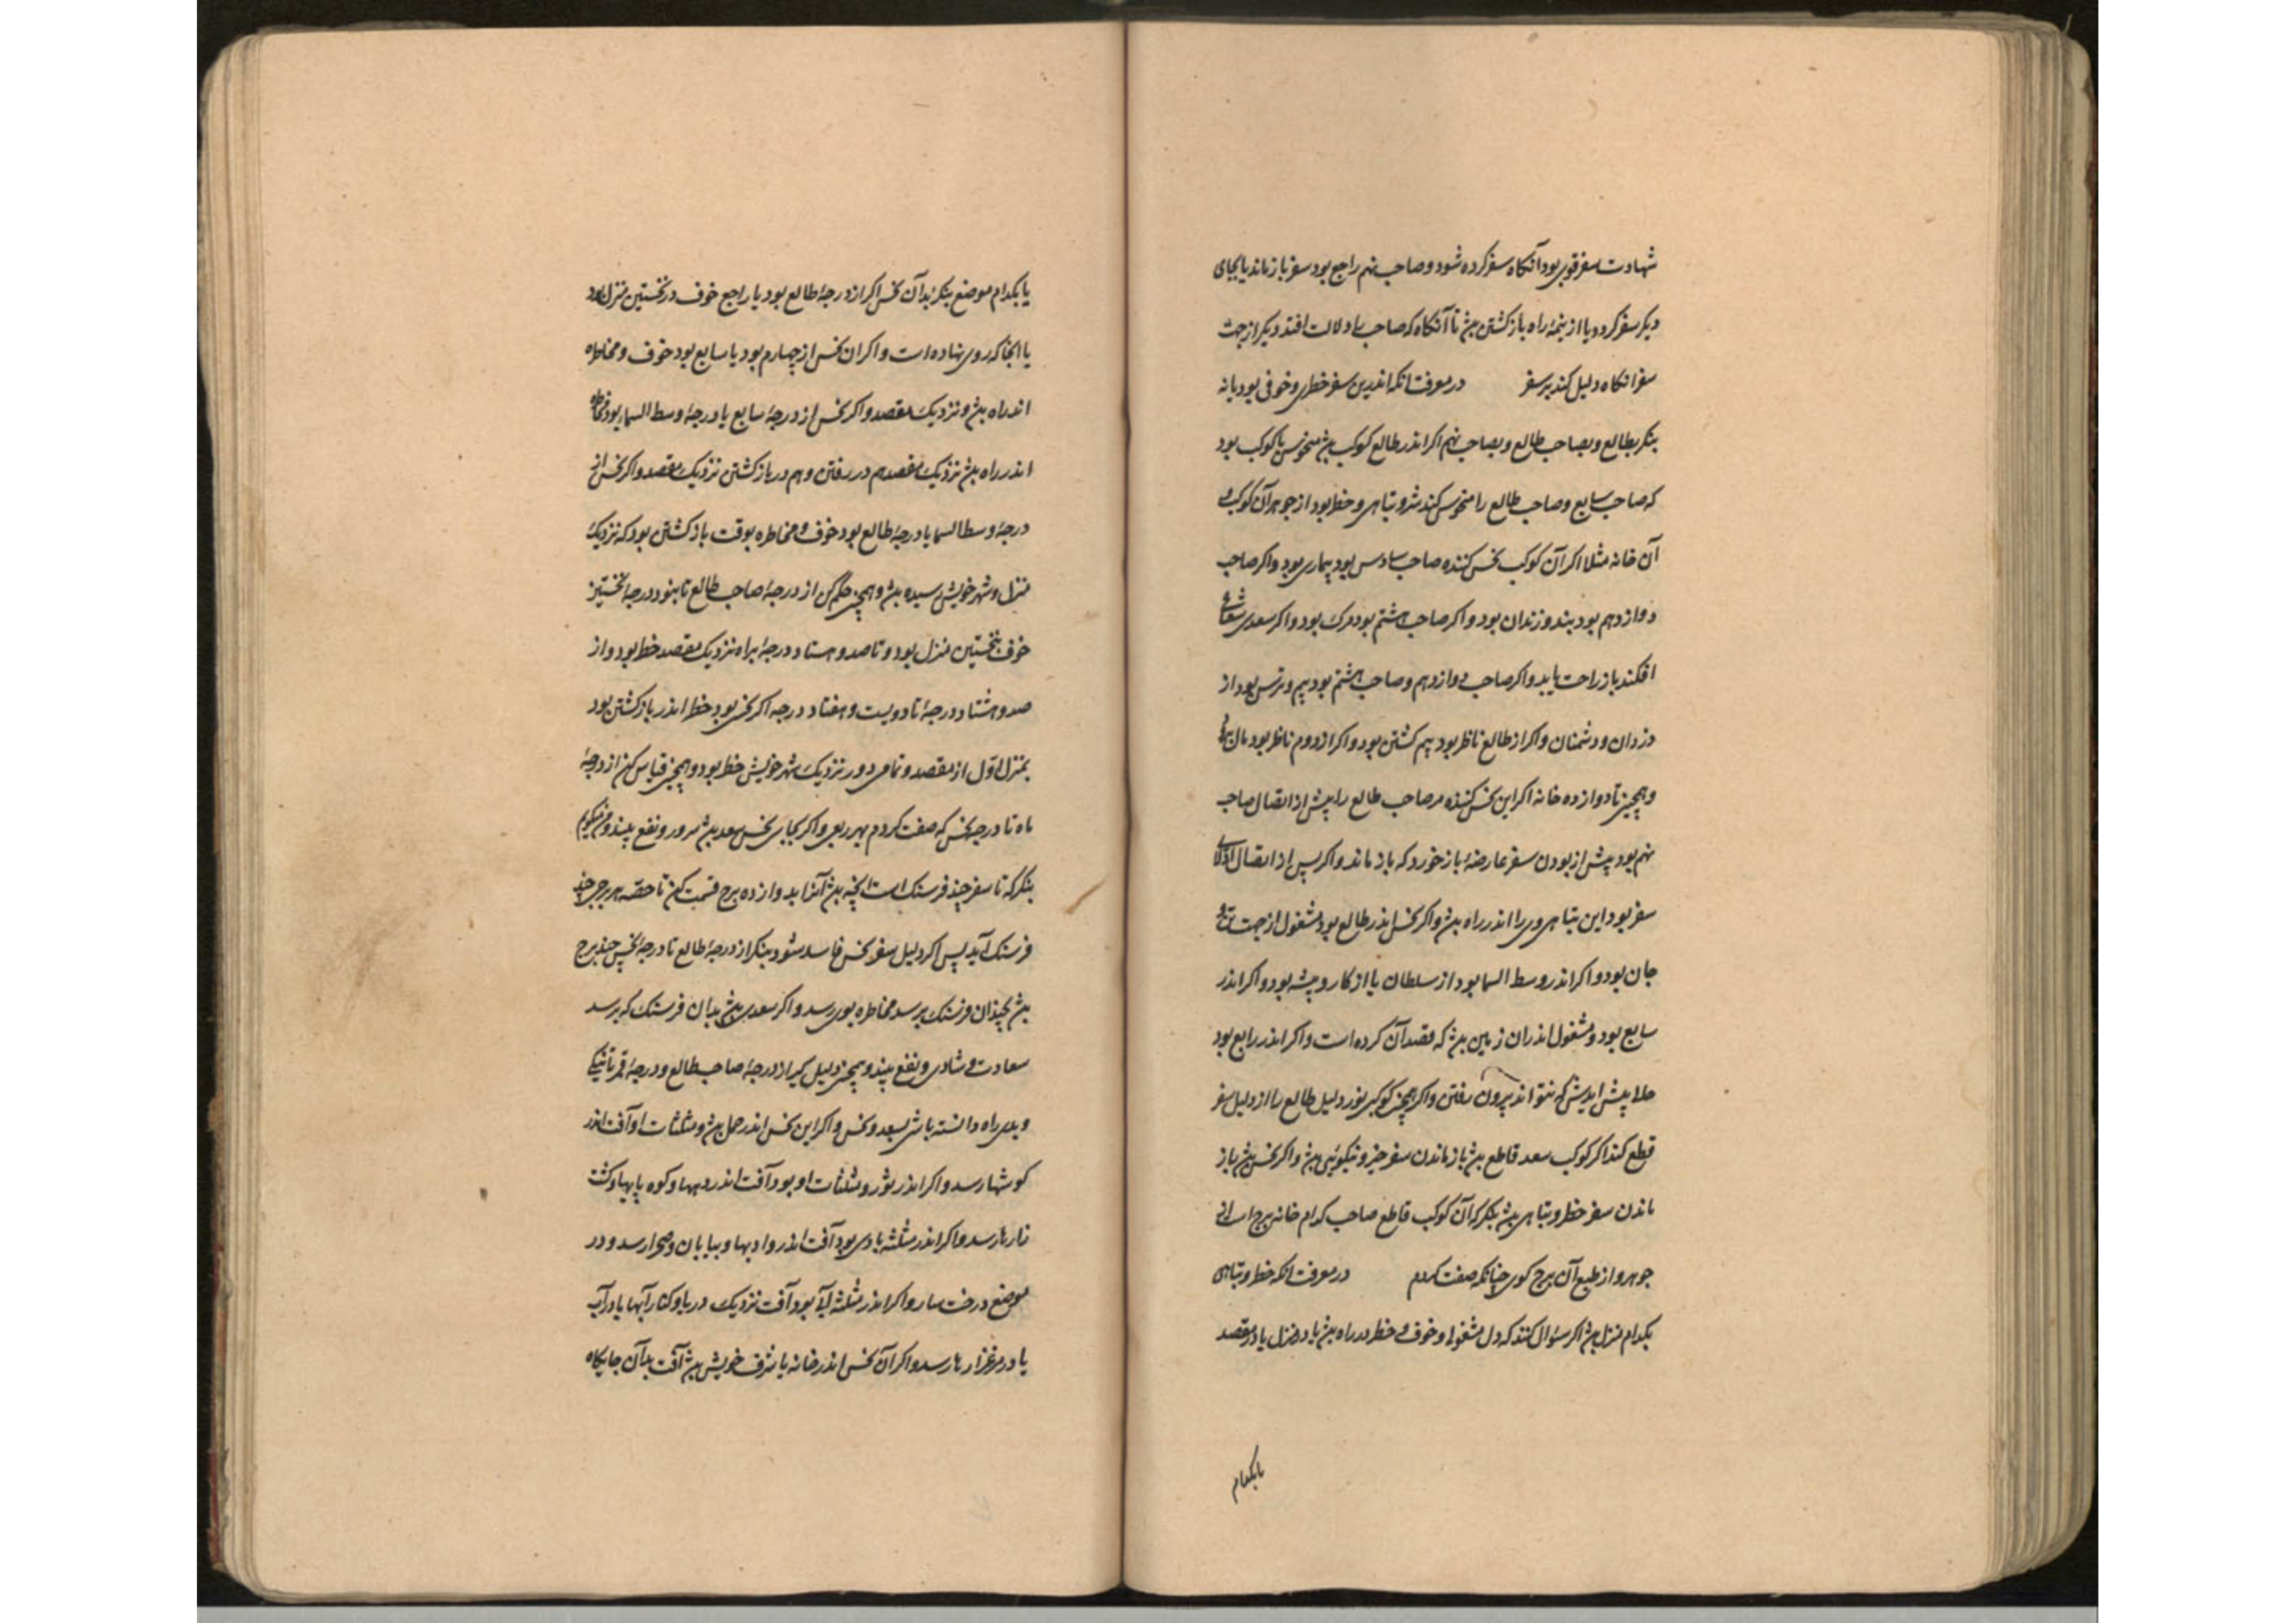 شهادت سفر قوی بود آنکاه سفر کرده شود و صاحب نهم راجع بود سفر باز ماند یا بجای
دیکر سفر کرد و یا از نیمهٔ راه بازکشتن بش تا آنکاه که صاحب دلالت افتد دیکر از جهت
سفر انکاه دلیل کند بر سفر در معرفت انکه اندرین سفر خطری و خوفی بود یا نه
بنکر بطالع و بصاحب طالع و بصاحب نهم اکر اندر طالع کوکب بش منحوس یا کوکب بود
که صاحب سابع و صاحب طالع را منحوس کند شر و تباهی و خطر بود از جوهر آن کوکب و
آن خانه مثلا اکر آن کوکب نحس کننده صاحب سادس بود بیماری بود و اکر صاحب
دوازدهم بود بند و زندان بود و اکر صاحب هشتم بود مرک بود و اکر سعدی شعاع
افکند باز راحت یابد و اکر صاحب دوازدهم و صاحب هشتم بود بیم و ترس بود از
دزدان و دشمنان و اکر از طالع ناظر بود بیم کشتن بود و اکر از دوم ناظر بود مال
و همچنین تا دوازده خانه اکر این نحس کننده مر صاحب طالع را پیش از اتصال صاحب
نهم بود پیش از بودن سفر عارضهٔ باز خورد که باز ماند و اکر پس از اتصال
سفر بود این تباهی وی را اندر راه بش و اکر نحس اندر طالع بود مشغول از جهت تن و
جان بود و اکر اندر وسط السما بود از سلطان یا از کار و پیشه بود و اکر اندر
سابع بود و مشغول اندران زمین بش که قصد آن کرده است و اکر اندر رابع بود
حلا پیش اندیش که نتواند بیرون رفتن و اکر همچنین کوکبی نور دلیل طالع را از دلیل سفر
قطع کند اکر کوکب سعد قاطع بش باز ماندن سفر خیر و نیکوئی بش و اکر نحس بش باز
ماندن سفر خطر و تباهی بش بنکر که آن کوکب قاطع صاحب کدام خانه برج است از
جوهر و از طبع آن برج کوی چنانکه صفت کردم در معرفت انکه خطر و تباهی
بکدام منزل بش اکر سئوال کنند که دل مشغول و خوف و خطر در راه بش یا در منزل یا در مقصد
یا بکدام
یا بکدام موضع بنکر بدآن نحس اکر از درجهٔ طالع بود یا راجع خوف در نخستین منزل بود
یا انجا که روی نهاده است و اکر ان نحس از چهارم بود یا سابع بود خوف و مخاطره
اندر راه بش و نزدیک مقصد و اکر نحس از درجهٔ سابع یا درجهٔ وسط السماء بود مخاطره
اندر راه بش نزدیک مقصد هم در رفتن و هم در بازکشتن نزدیک مقصد و اکر نحس از
درجهٔ وسط السما یا درجهٔ طالع بود خوف و مخاطره بوقت بازکشتن بود که نزدیک
منزل و شهر خویش رسیده بش و همچنین حکم کن از درجهٔ صاحب طالع تا بنود درجهٔ نخستین
خوف نخستین منزل بود و تا صد و هشتاد درجهٔ براه نزدیک مقصد خطر بود و از
صد و هشتاد درجهٔ تا دویست و هفتاد درجه اکر نحس بود خطر اندر بازکشتن بود
بمنزل اول از مقصد و تمامی دور نزدیک شهر خویش خطر بود و همچنین قیاس کن از درجهٔ
ماه تا درجهٔ نحس که صفت کردم بهر ربعی و اکر بجای نحس سعد بش سرور و نفع بیند و
بنکر که تا سفر چند فرسنک است انچه بش آنرا بدوازده برج قسمت کن تا حصّه هر برجی چند
فرسنک آید پس اکر دلیل سفر نحس فاسد شود بنکر از درجهٔ طالع تا درجهٔ نحس چند برج
بش بچندان فرسنک برسد مخاطره بوی رسد و اکر سعدی بش بدان فرسنک که برسد
سعادت و شادی و نفع بیند و همچنین دلیل کیر از درجهٔ صاحب طالع و درجهٔ قمر تا نیکی
و بدی راه دانسته باشی بسعد و نحس و اکر این نحس اندر حمل بش و مثلثات او آفت اندر
کوشها رسد و اکر اندر ثور و مثلثات او بود آفت اندر دیهها و کوه پایها و کشت
زارها رسد و اکر اندر مثلثه بادی بود آفت اندر وادیها و بیابان و صحرا رسد و در
موضع درخت سار و اکر اندر مثلثه آبی بود آفت نزدیک دریا و کنار آبها یا در آب
یا در مرغزارها رسد و اکر آن نحس اندر خانه یا شرف خویش بش آفت بدآن جایکاه